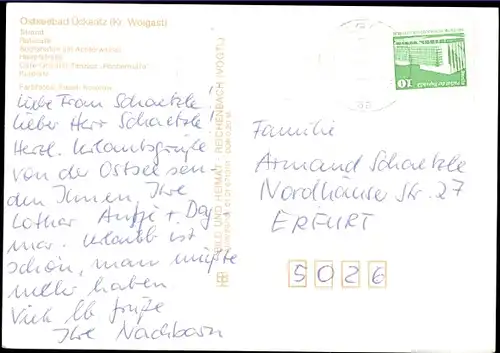 Ostseebad Ückeritz (Kr. Wolgast)
Strand
Liebe Frau Schaetzle!
Lieber Herr Schaetzle!
Herzl. Urlaubsgrüße
von der Ostsee sen-
den Ihnen, Ihre
Lothar + Dag-
mar. Urlaub ist
schön, man müßte
mehr haben
Viele lb Grüße
Ihre Nachbarn
BILD UND HEIMAT REICHENBACH (VOGTL)
10
Familie
Armand Schaetzle
Nordhäuser Str. 27
ERFURT
5026